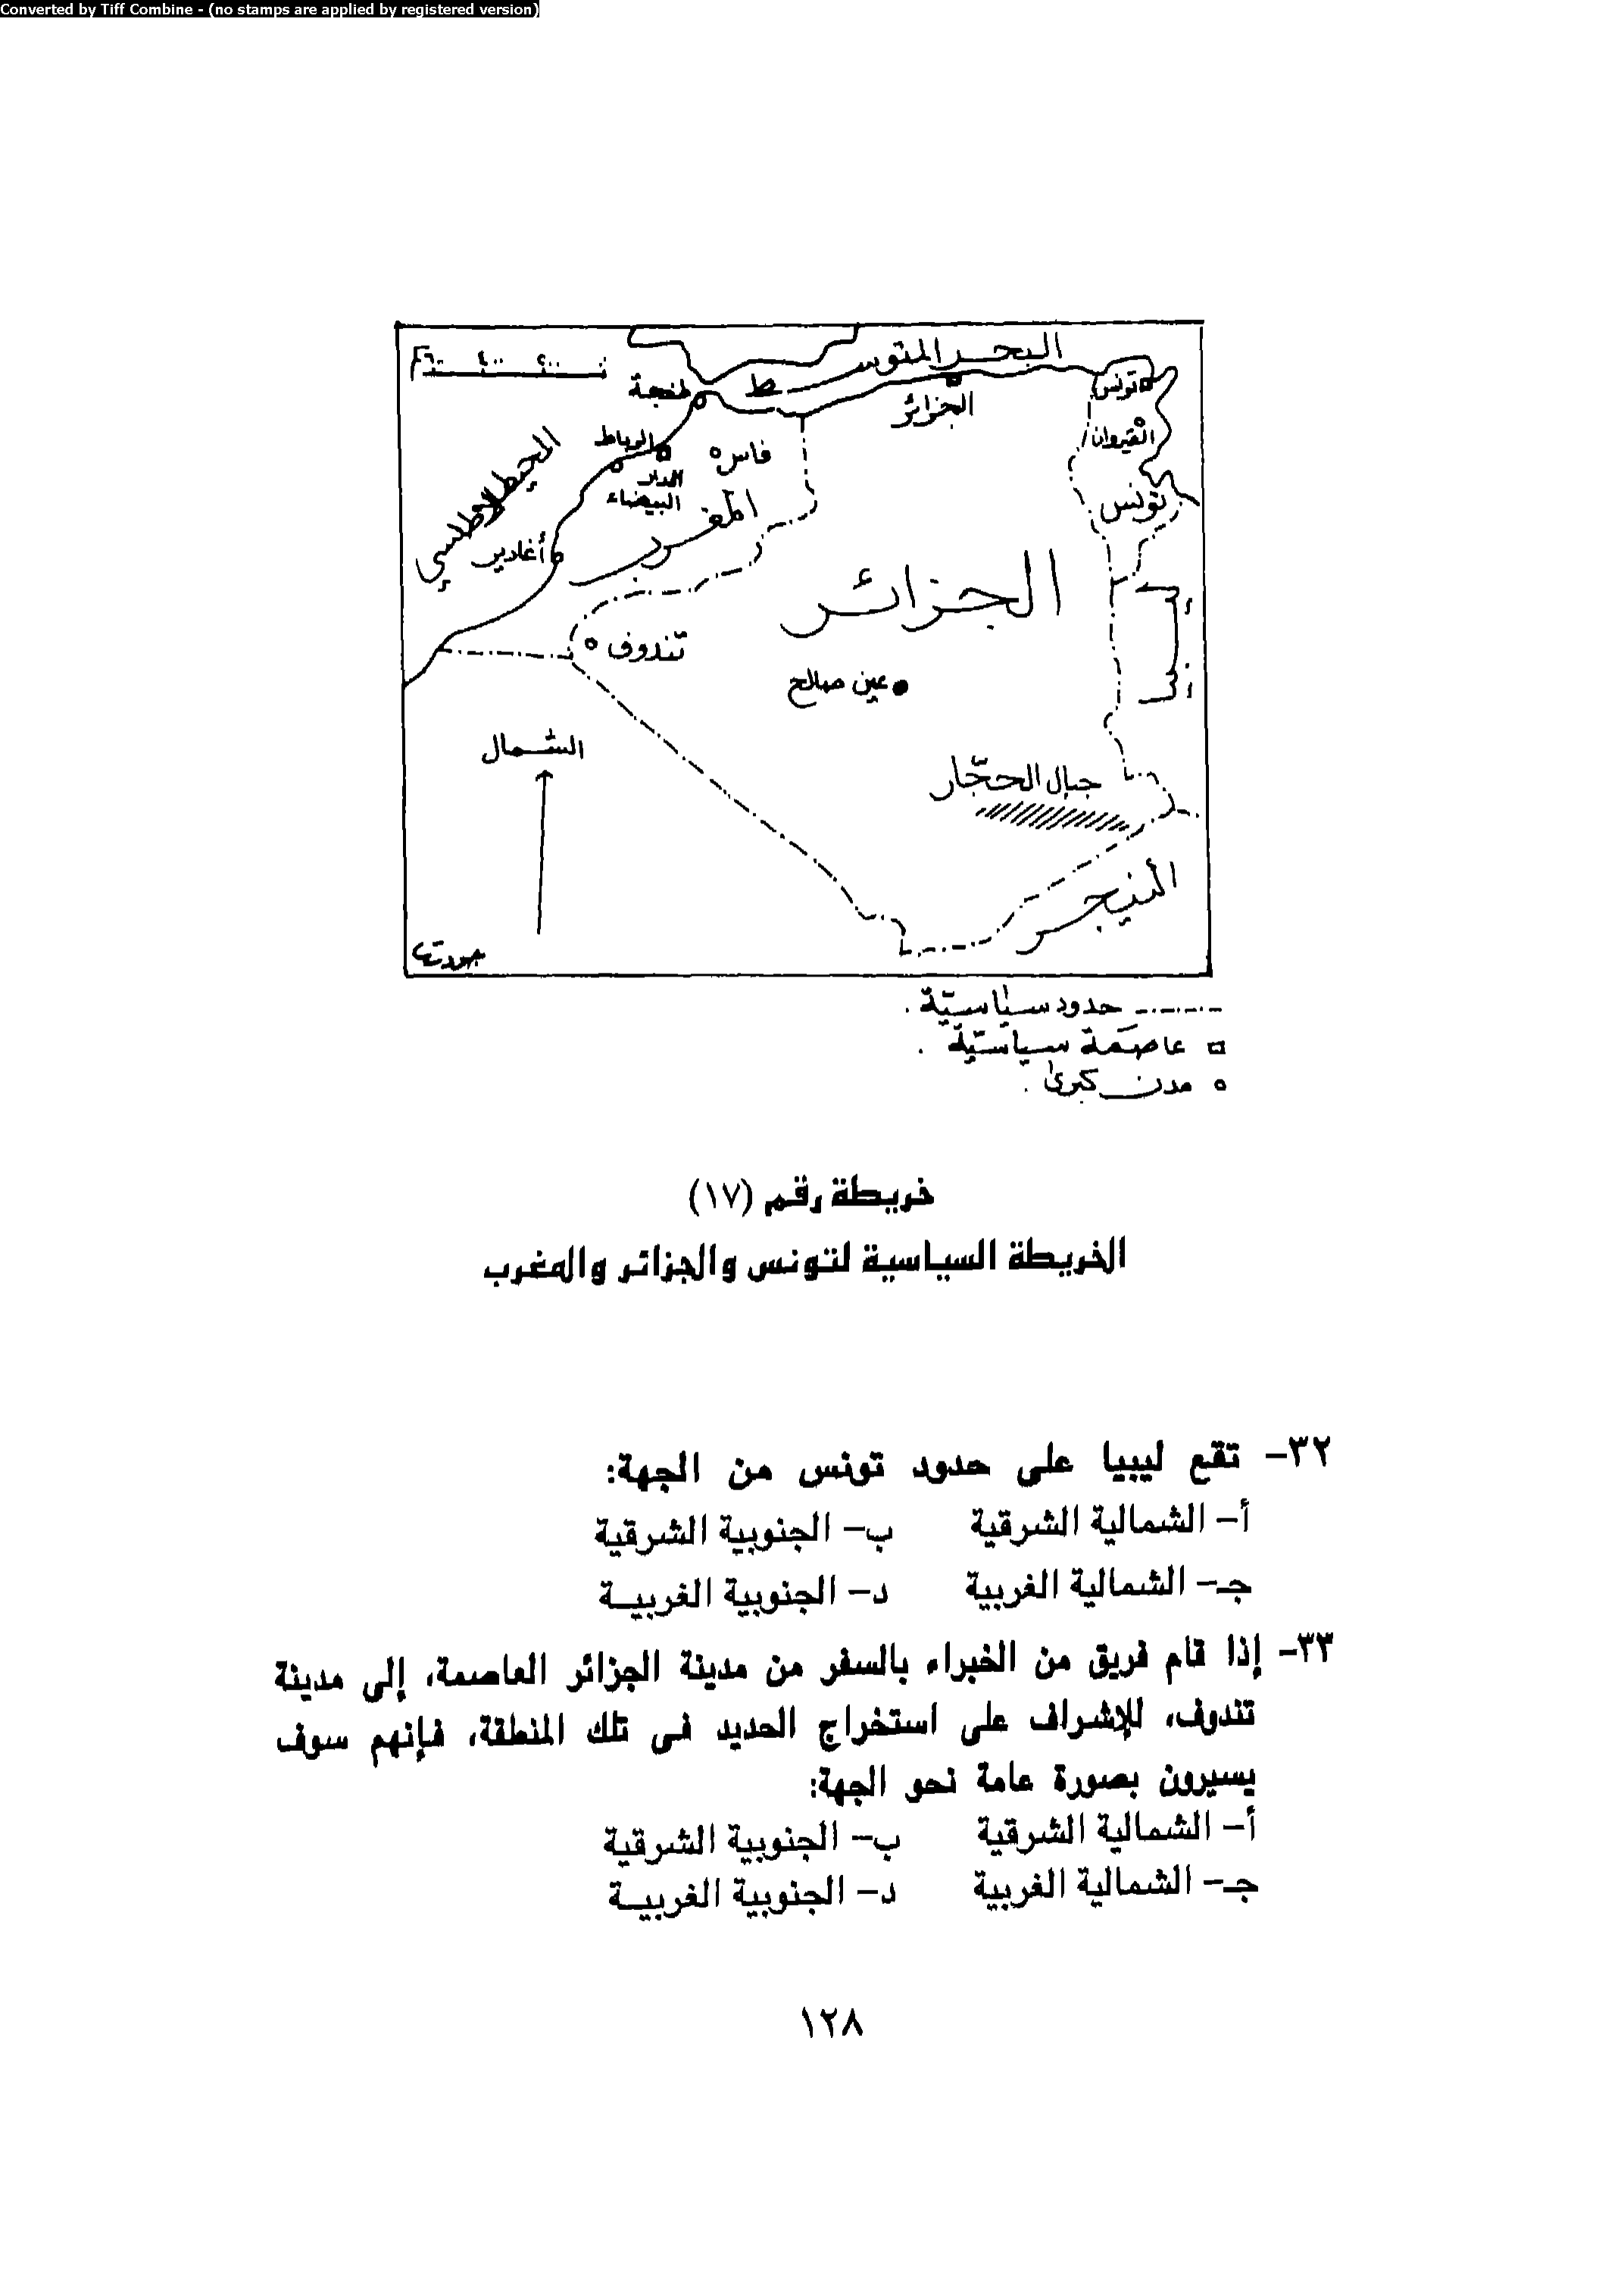 Converted by Tiff Combine - (no stamps are applied by registered version)
البحر المتوسط
كم ٦٠٠ ٤٠٠ ٢٠٠
طنجة
تونس
الجزائر
الرباط
فاس
القيروان
الدار
البيضاء
المحيط الأطلسي
المغرب
تونس
أغادير
الجزائر
ليبيا
تندوف
عين صالح
الشمال
جبال الحجّار
النيجر
جودت
حدود سياسيّة .
عاصمَة سياسيّة .
مدن كبرى .
خريطة رقم (١٧)
الخريطة السياسية لتونس والجزائر والمغرب
٣٢- تقع ليبيا على حدود تونس من الجهة:
أ- الشمالية الشرقية ب- الجنوبية الشرقية
جـ- الشمالية الغربية د- الجنوبية الغربيــة
٣٣- إذا قام فريق من الخبراء بالسفر من مدينة الجزائر العاصمة، إلى مدينة
تندوف، للإشراف على استخراج الحديد فى تلك المنطقة، فإنهم سوف
يسيرون بصورة عامة نحو الجهة:
أ- الشمالية الشرقية ب- الجنوبية الشرقية
جـ- الشمالية الغربية د- الجنوبية الغربيــة
١٢٨